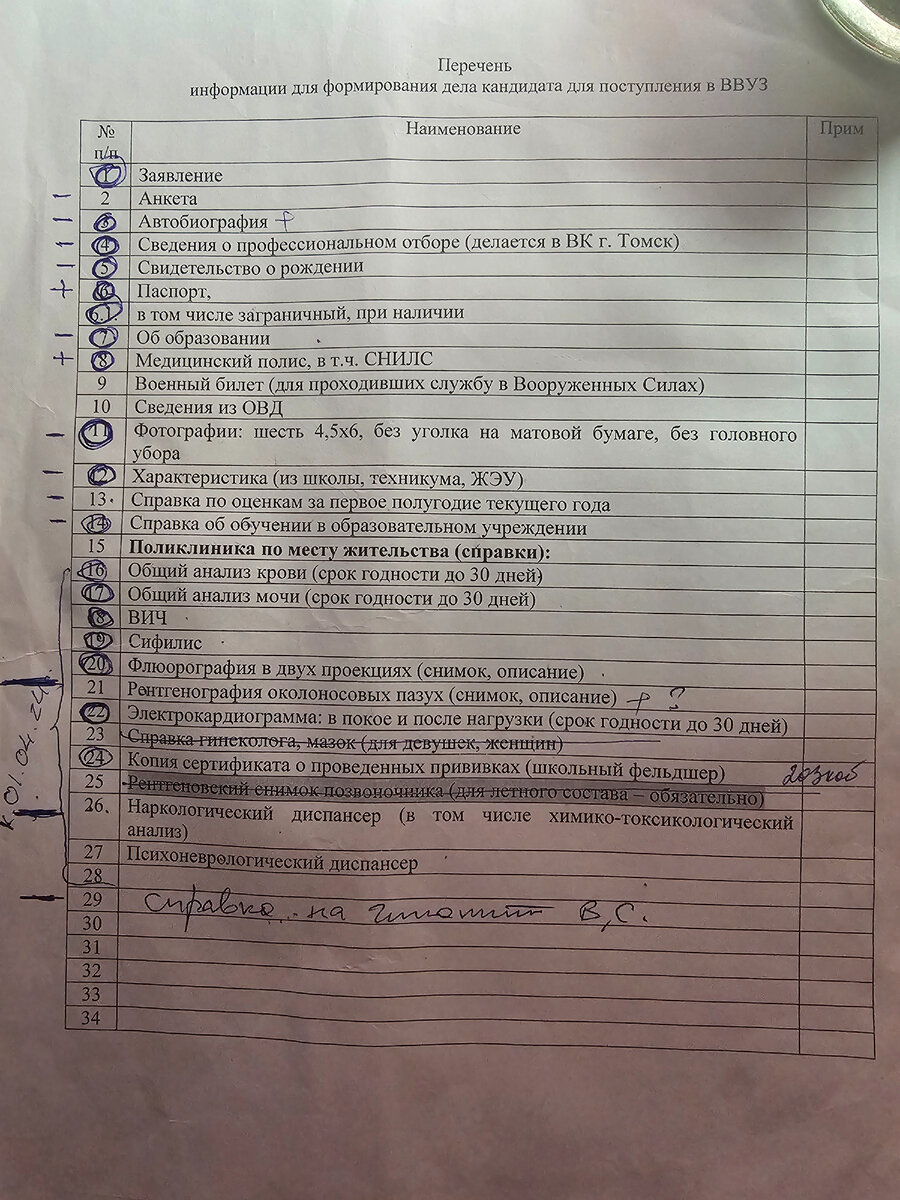 Перечень
информации для формирования дела кандидата для поступления в ВВУЗ
№ п/п Наименование Прим
1 Заявление
2 Анкета
3 Автобиография +
4 Сведения о профессиональном отборе (делается в ВК г. Томск)
5 Свидетельство о рождении
6 Паспорт,
6.1. в том числе заграничный, при наличии
7 Об образовании
8 Медицинский полис, в т.ч. СНИЛС
9 Военный билет (для проходивших службу в Вооруженных Силах)
10 Сведения из ОВД
11 Фотографии: шесть 4,5х6, без уголка на матовой бумаге, без головного
убора
12 Характеристика (из школы, техникума, ЖЭУ)
13. Справка по оценкам за первое полугодие текущего года
14 Справка об обучении в образовательном учреждении
15 Поликлиника по месту жительства (справки):
16 Общий анализ крови (срок годности до 30 дней)
17 Общий анализ мочи (срок годности до 30 дней)
18 ВИЧ
19 Сифилис
20 Флюорография в двух проекциях (снимок, описание)
21 Рентгенография околоносовых пазух (снимок, описание) + ?
22 Электрокардиограмма: в покое и после нагрузки (срок годности до 30 дней)
23 Справка гинеколога, мазок (для девушек, женщин)
24 Копия сертификата о проведенных прививках (школьный фельдшер)
25 Рентгеновский снимок позвоночника (для летного состава – обязательно)
26. Наркологический диспансер (в том числе химико-токсикологический
анализ)
27 Психоневрологический диспансер
28
29 справка на В,С.
30
31
32
33
34
к 01.04.24.